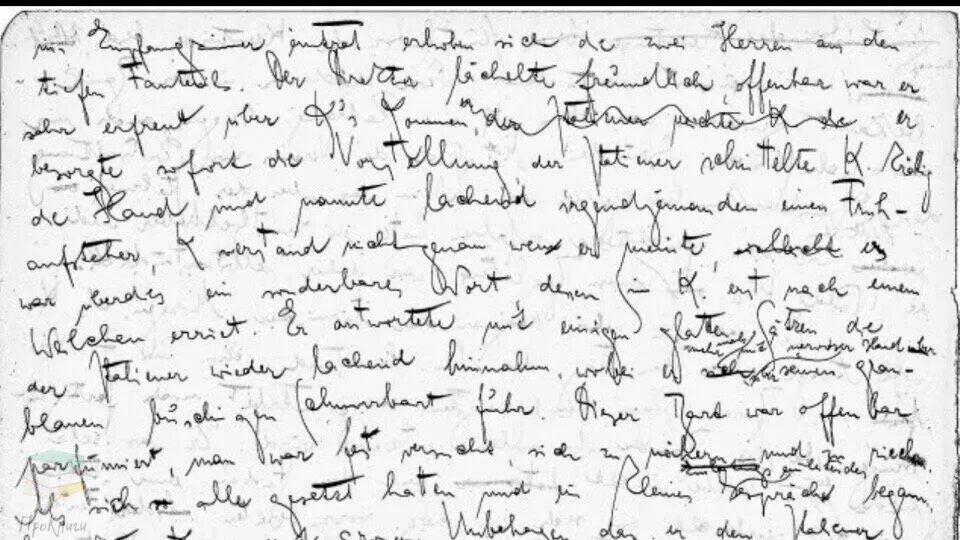 ins Empfangszimmer eintrat erhoben sich die zwei Herren aus den
tiefen Fauteuils. Der Direktor lächelte freundlich, offenbar war er
sehr erfreut über K's Kommen, er der Italiener reichte K die er
besorgte sofort die Vorstellung der Italiener schüttelte K kräftig
die Hand und nannte lachend irgendjemanden einen Früh-
aufsteher, K verstand nicht genau wen er meinte, es
war überdies ein sonderbares Wort dessen Sinn K. erst nach einem
Weilchen erriet. Er antwortete mit einigen glatten Sätzen die
der Italiener wieder lachend hinnahm, wobei er mehrmals mit nervöser Hand über seinen grau-
blauen buschigen Schnurrbart fuhr. Dieser Bart war offenbar
parfümiert, man war fast versucht, sich zu nähern und zu riechen.
Als sich alle gesetzt hatten und ein kleines einleitendes Gespräch begann,
Unbehagen, daß er den Italiener
ПроКниги